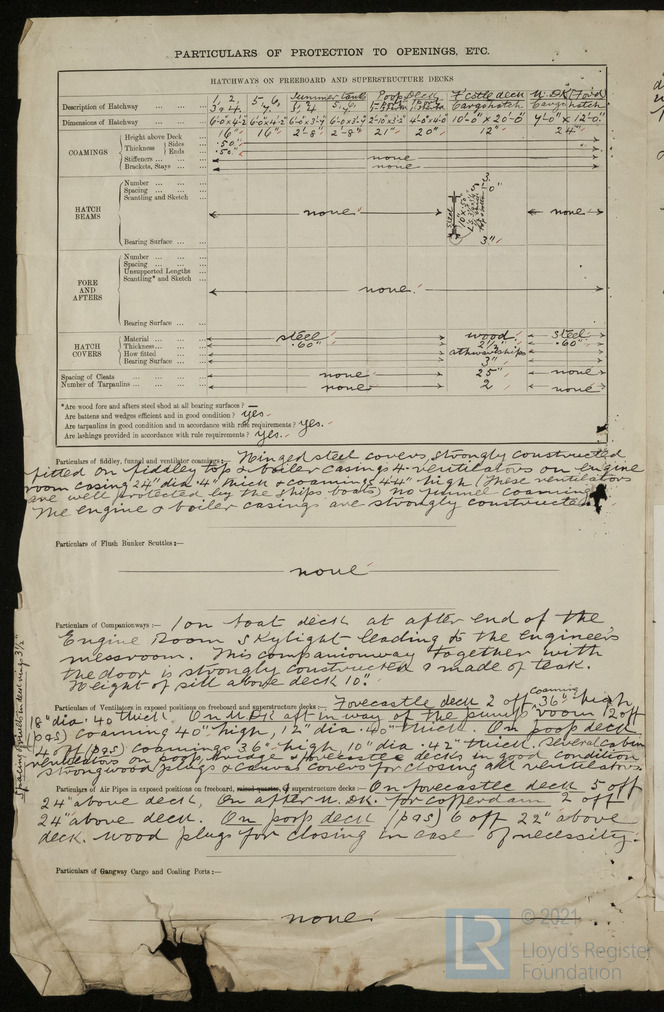 PARTICULARS OF PROTECTION TO OPENINGS, ETC.
HATCHWAYS ON FREEBOARD AND SUPERSTRUCTURE DECKS
Description of Hatchway 1, 2, 3 & 4 5, 6, 7 Summer tank Poop deck F'castle deck Cargo hatch U. DK (For'd) Cargo hatch
Dimensions of Hatchway 6'-0" x 4'-2 6'-0" x 4'-2 6'-0" x 3'-9 6'-0 x 3'-9 4'-0" x 4'-0 10'-0" x 20'-0" 9'-0" x 12'-0"
COAMINGS
Height above Deck 16" 16" 2'-8" 2'-8" 21" 20" 12" 24"
Thickness Sides .50"
Ends .50"
Stiffeners none
Brackets, Stays none
HATCH BEAMS
Number
Spacing
Scantling and Sketch none none
Bearing Surface 3"
FORE AND AFTERS
Number
Spacing
Unsupported Lengths
Scantling* and Sketch
none
Bearing Surface
HATCH COVERS
Material steel wood steel
Thickness .60" 2½" .60"
How fitted athwartships
Bearing Surface 3"
Spacing of Cleats none 25" none
Number of Tarpaulins none 2 none
*Are wood fore and afters steel shod at all bearing surfaces? —
Are battens and wedges efficient and in good condition? yes.
Are tarpaulins in good condition and in accordance with rule requirements? yes.
Are lashings provided in accordance with rule requirements? yes.
Particulars of fiddley, funnel and ventilator coamings:— Hinged steel covers, strongly constructed
fitted on fiddley top & boiler casings 4 ventilators on engine
room casing 24" dia .4" thick & coamings 44" high (These ventilators
are well protected by the ships boats) no funnel coaming
The engine & boiler casings are strongly constructed
Particulars of Flush Bunker Scuttles:—
none
Particulars of Companionways:— 1 on boat deck at after end of the
Engine Room Skylight leading to the engineers
messroom. This companionway together with
the door is strongly constructed & made of teak.
Height of sill above deck 10".
Particulars of Ventilators in exposed positions on freeboard and superstructure decks:— Forecastle deck 2 off, coaming 36" high
18" dia .40 thick. On U. DK aft in way of the pump room 2 off
(p&s) coaming 40" high, 12" dia .40 thick. On poop deck
4 off (p&s) coamings 36" high, 10" dia .42" thick. Several cabin
ventilators on poop, bridge & forecastle decks in good condition
strong wood plugs & canvas covers for closing all ventilators
Particulars of Air Pipes in exposed positions on freeboard, raised quarter, & superstructure decks:— On forecastle deck 5 off
24" above deck, On after U. DK. for cofferdam 2 off
24" above deck. On poop deck (p&s) 6 off 22" above
deck. wood plugs for closing in case of necessity.
Particulars of Gangway Cargo and Coaling Ports:—
none
LR
© 2021
Lloyd's Register
Foundation